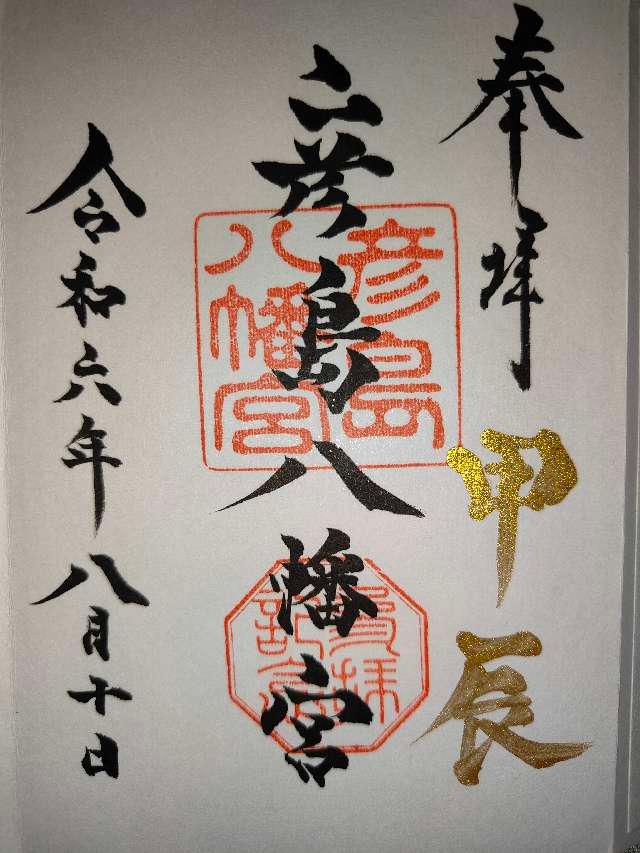 奉拝
甲辰
彦島八幡宮
彦島
八幡宮
参拝
記念
令和六年八月十日